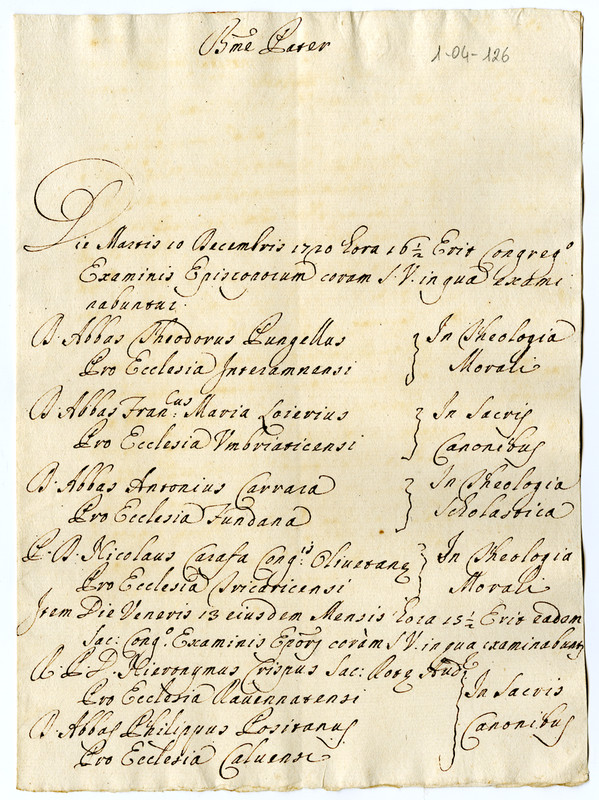 Bmẽ Pater
1-04-126
Die Martis 10 Decembris 1720 hora 16 ½ Erit Congreg.º
Examinis Episcoporum coram S. V. in qua exami
nabuntur.
D. Abbas Theodorus Pungellus } In Theologia
Pro Ecclesia Interamnensi Morali
D. Abbas Fran.cus Maria Loierius } In Sacris
Pro Ecclesia Vmbriaticensi Canonibus
D. Abbas Antonius Carrara } In Theologia
Pro Ecclesia Fundana Scholastica
P. D. Nicolaus Carafa Cong.is Olivetanę } In Theologia
Pro Ecclesia Morali
Item Die Veneris 13 eiusdem Mensis hora 15 ½ Erit eadem
Sac: Cong.º Examinis Epõrj coràm S. V. in qua examinabuntj
R. P. D. Hieronymus Crispus Sac: Rotę Aud.
Pro Ecclesia Rauennatensi } In Sacris
D. Abbas Philippus Positanus Canonibus
Pro Ecclesia Caluensi